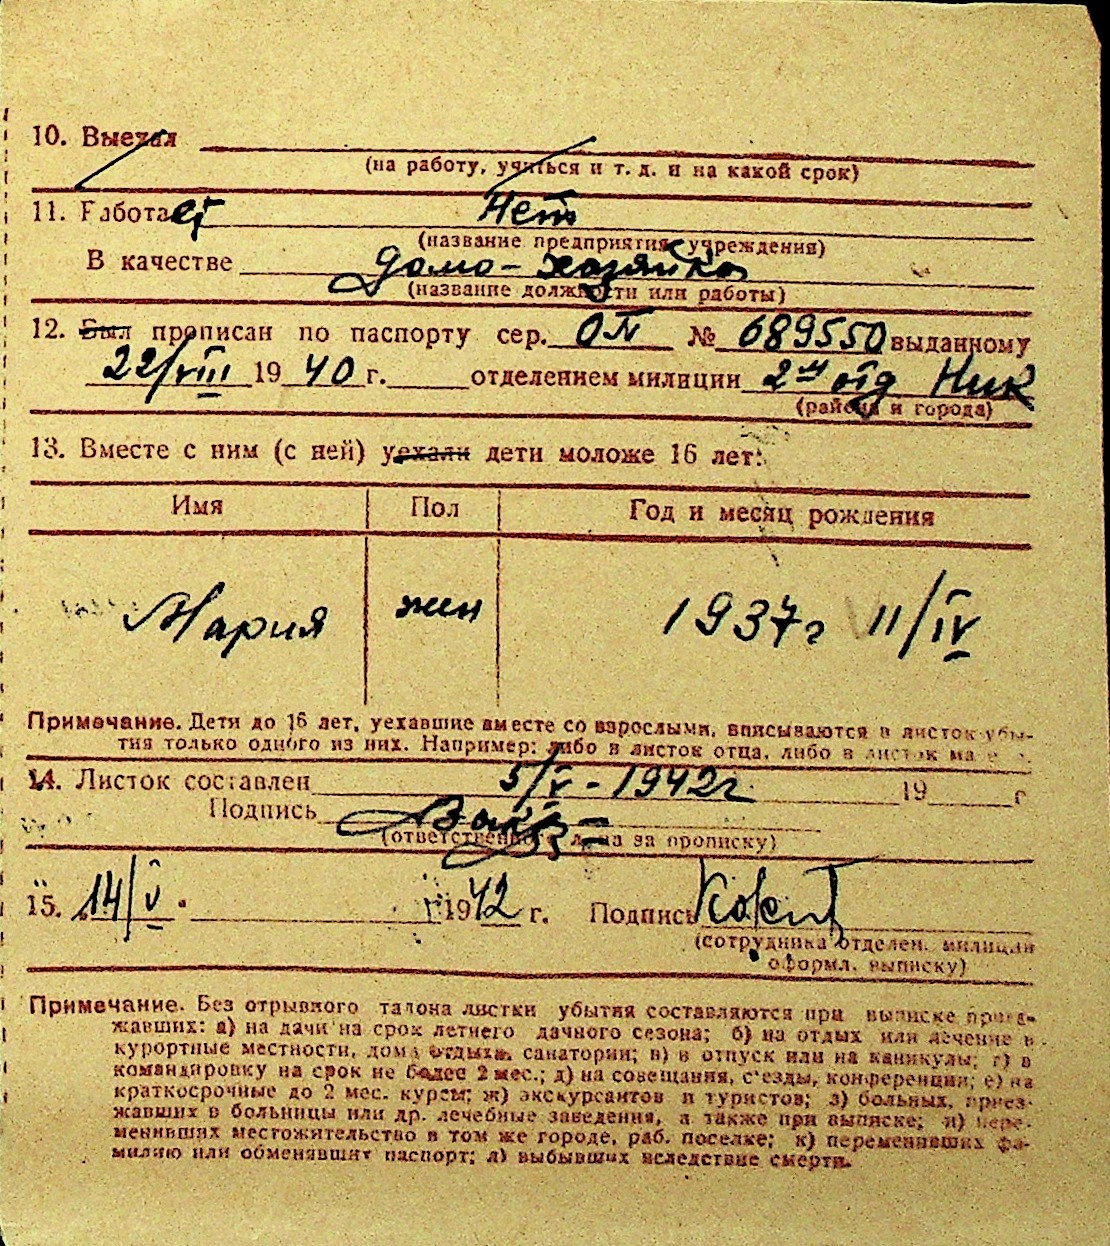 10. Выехал
(на работу, учиться и т. д. и на какой срок)
11. Работает Нет
(название предприятия, учреждения)
В качестве домо-хозяйка
(название должности или работы)
12. Был прописан по паспорту сер. ОП № 689550 выданному
22/VIII 1940 г. отделением милиции 2м отд Ник
(района и города)
13. Вместе с ним (с ней) уехали дети моложе 16 лет:
Имя Пол Год и месяц рождения
Мария жен 1937г 11/IV
Примечание. Дети до 16 лет, уехавшие вместе со взрослыми, вписываются в листок убы-
тия только одного из них. Например: либо в листок отца, либо в листок
14. Листок составлен 5/V - 1942г 19 г
Подпись
(ответственного лица за прописку)
15. 14/V 1942 г. Подпись
(сотрудника отделен. милиции
оформл. выписку)
Примечание. Без отрывного талона листки убытия составляются при выписке приез-
жавших: а) на дачи на срок летнего дачного сезона; б) на отдых или лечение в
курортные местности, дома отдыха, санатории; в) в отпуск или на каникулы; г) в
командировку на срок не более 2 мес.; д) на совещания, с'езды, конференции; е) на
краткосрочные до 2 мес. курсы; ж) экскурсантов и туристов; з) больных, приез-
жавших в больницы или др. лечебные заведения, а также при выписке; и) пере-
менивших местожительство в том же городе, раб. поселке; к) переменивших фа-
милию или обменявших паспорт; л) выбывших вследствие смерти.